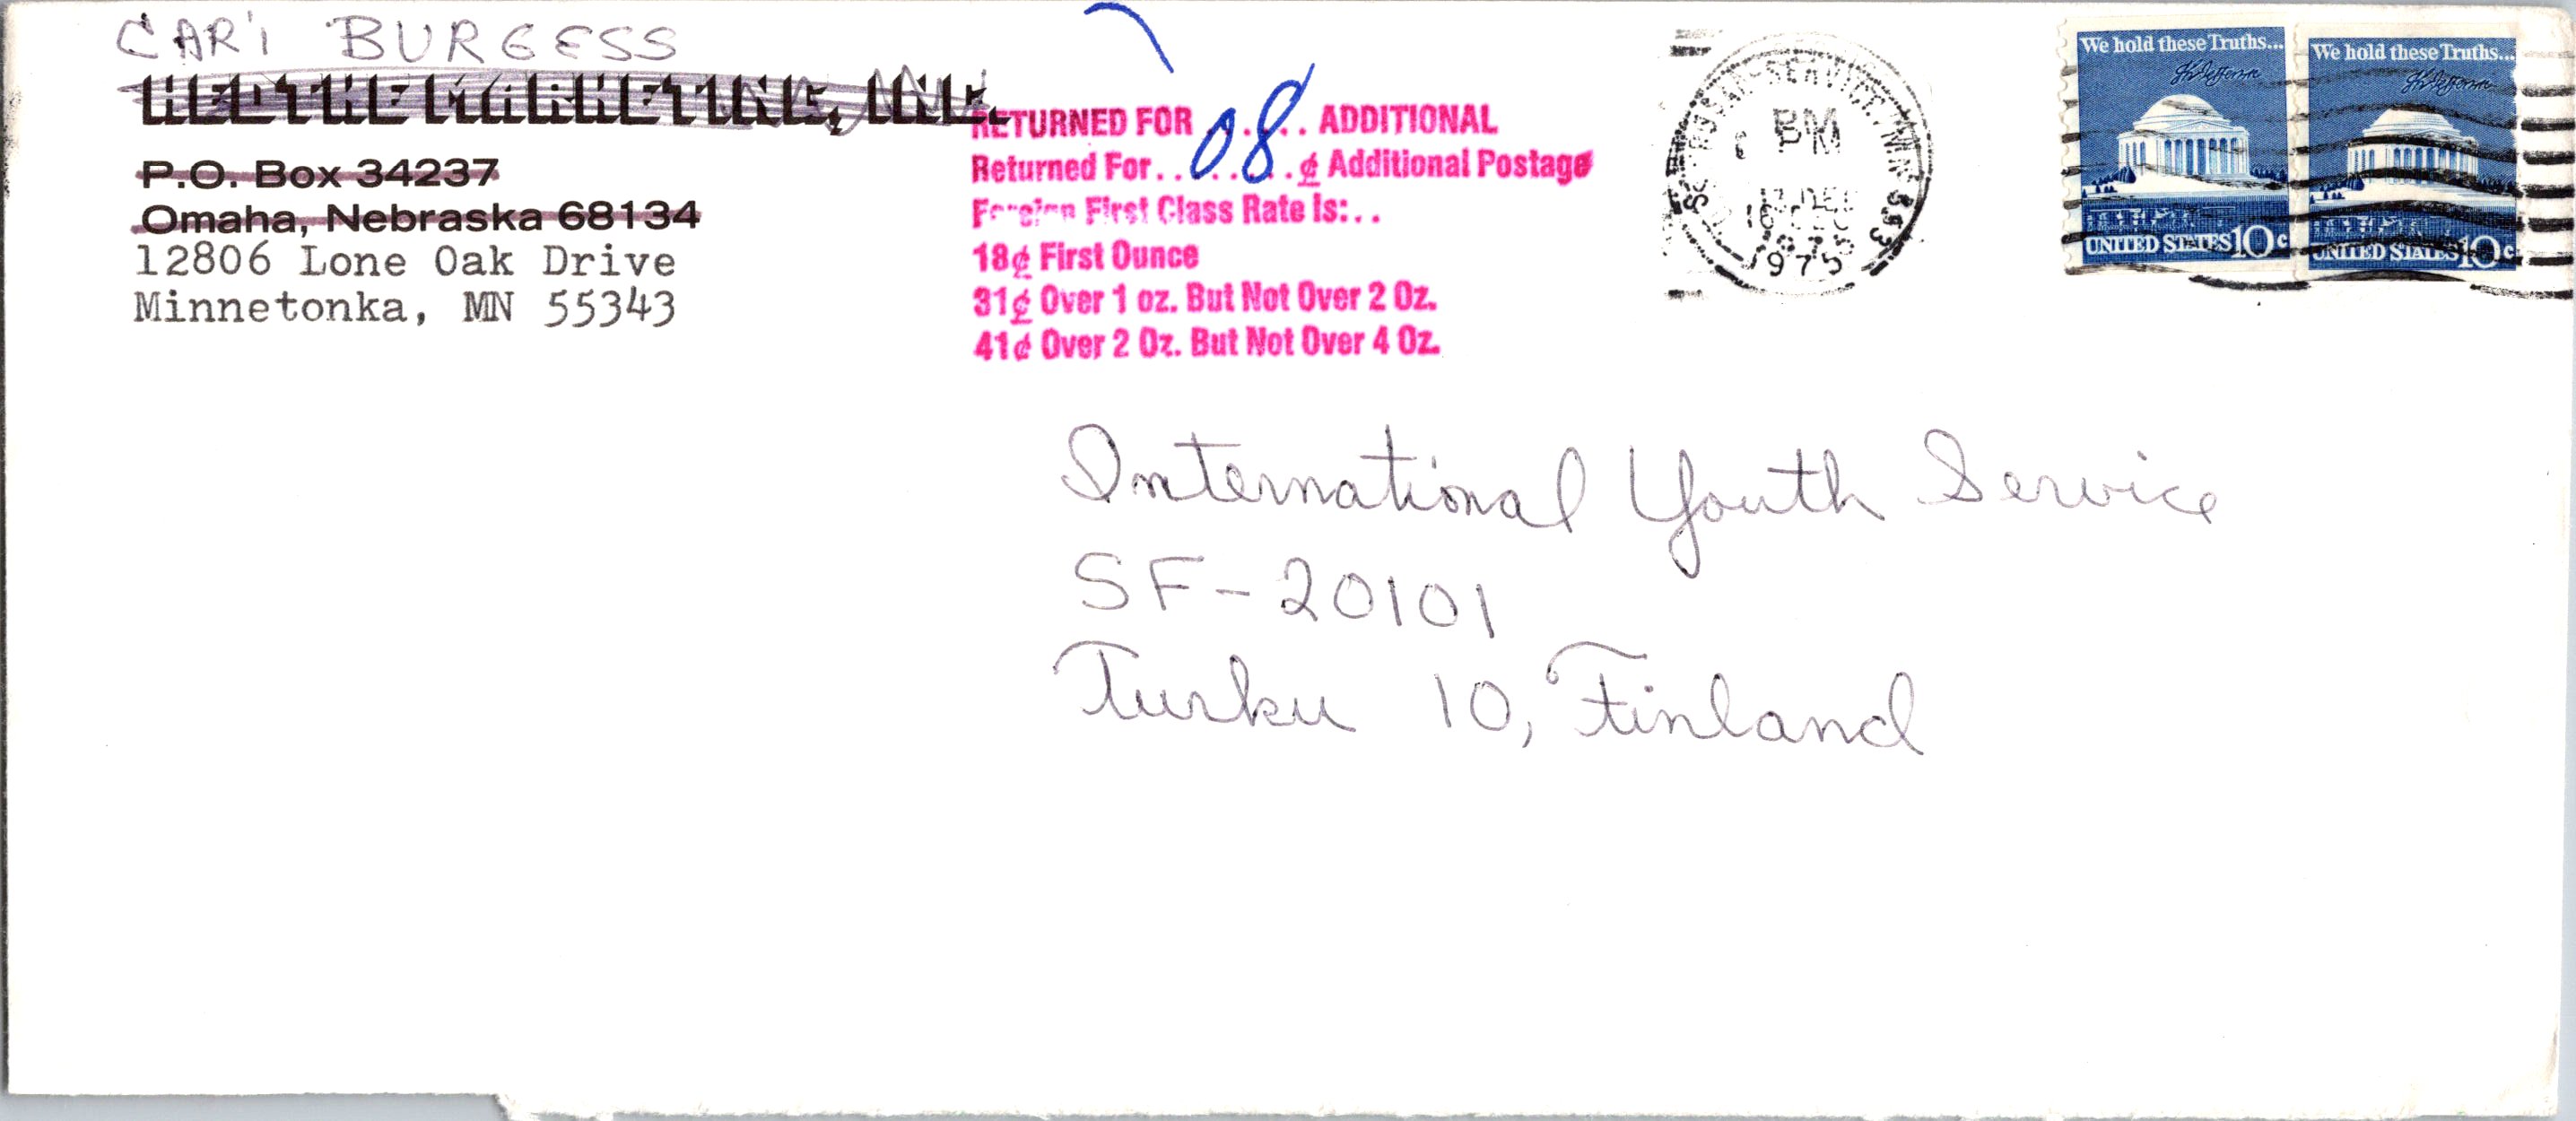 CARI BURGESS
HEDTKE MARKETING, INC.
P.O. Box 34237
Omaha, Nebraska 68134
12806 Lone Oak Drive
Minnetonka, MN 55343
RETURNED FOR 08 ADDITIONAL
Returned For.. ..¢ Additional Postage
Foreign First Class Rate Is:..
18¢ First Ounce
31¢ Over 1 oz. But Not Over 2 Oz.
41¢ Over 2 Oz. But Not Over 4 Oz.
POSTAL SERVICE, MN 553
PM
DEC
1975
We hold these Truths...
Th Jefferson
UNITED STATES 10c
We hold these Truths...
Th Jefferson
UNITED STATES 10c
International Youth Service
SF-20101
Turku 10, Finland